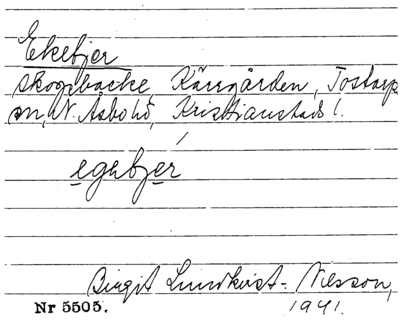 Ekebjer
skogsbacke, Kärrgården, Tostarp
sn, N. Åsbo hd, Kristianstads l.
egebjer
Birgit Lundkvist-Nilsson,
1941.
Nr 5505.